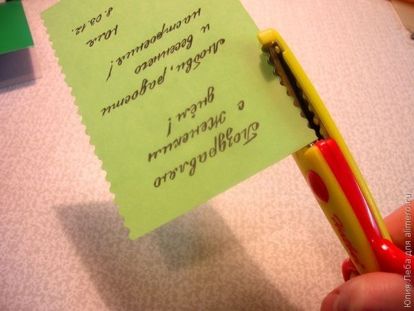 Поздравляю
с Женским
днём!
Любви, радости
и весеннего
настроения!
Юля
8.03.12.
Юлия Леба для alimero.ru